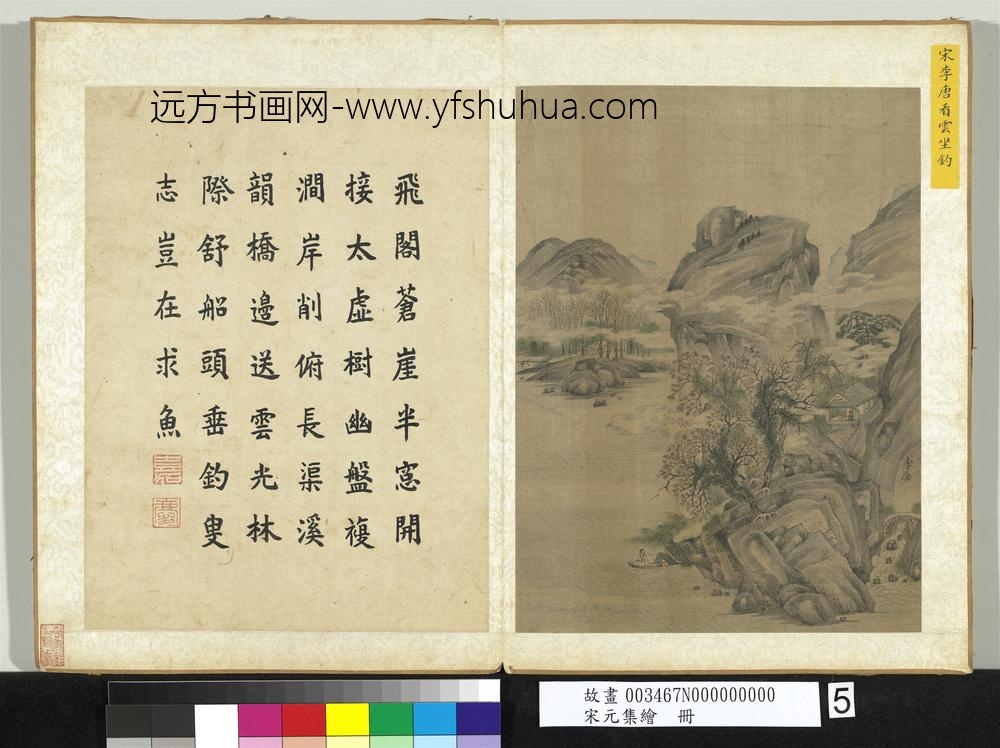 远方书画网-www.yfshuhua.com
宋李唐看雲坐釣
飛閣蒼崖半窓開
接太虛樹幽盤複
澗岸削俯長渠溪
韻橋邊送雲光林
際舒船頭垂釣叟
志豈在求魚
李唐
故畫 003467N000000000
宋元集繪 冊
5